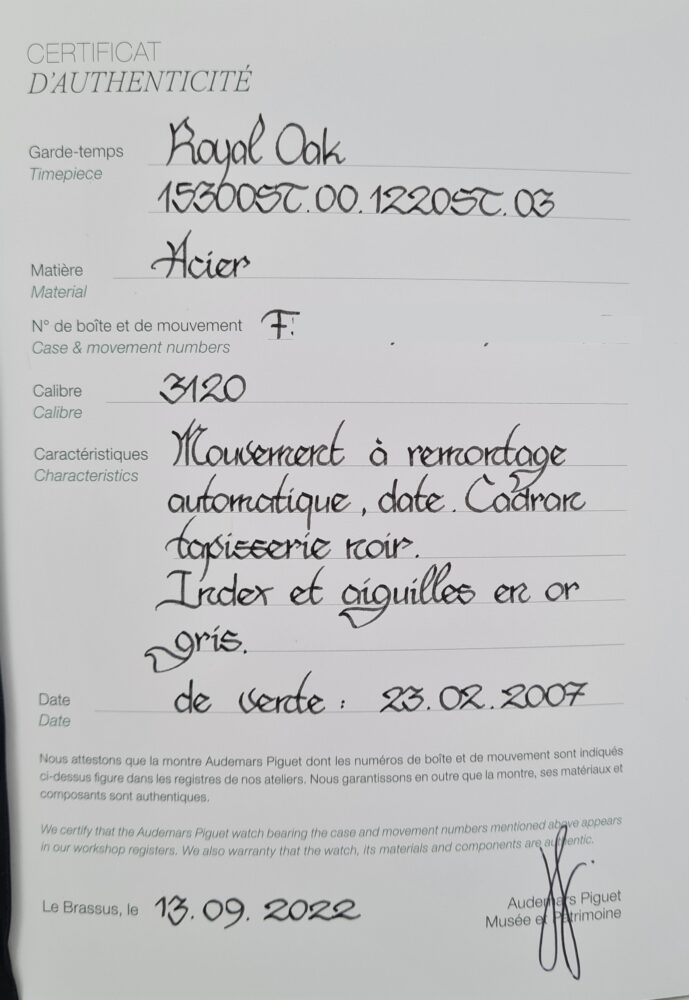 CERTIFICAT
D'AUTHENTICITÉ
Garde-temps Royal Oak
Timepiece
15300ST.00.1220ST.03
Matière Acier
Material
N° de boîte et de mouvement F.
Case & movement numbers
Calibre 3120
Calibre
Caractéristiques Mouvement à remontage
Characteristics
automatique, date. Cadran
tapisserie noir.
Index et aiguilles en or
gris.
Date de vente : 23.02.2007
Date
Nous attestons que la montre Audemars Piguet dont les numéros de boîte et de mouvement sont indiqués
ci-dessus figure dans les registres de nos ateliers. Nous garantissons en outre que la montre, ses matériaux et
composants sont authentiques.
We certify that the Audemars Piguet watch bearing the case and movement numbers mentioned above appears
in our workshop registers. We also warranty that the watch, its materials and components are authentic.
Le Brassus, le 13.09.2022
Audemars Piguet
Musée et Patrimoine